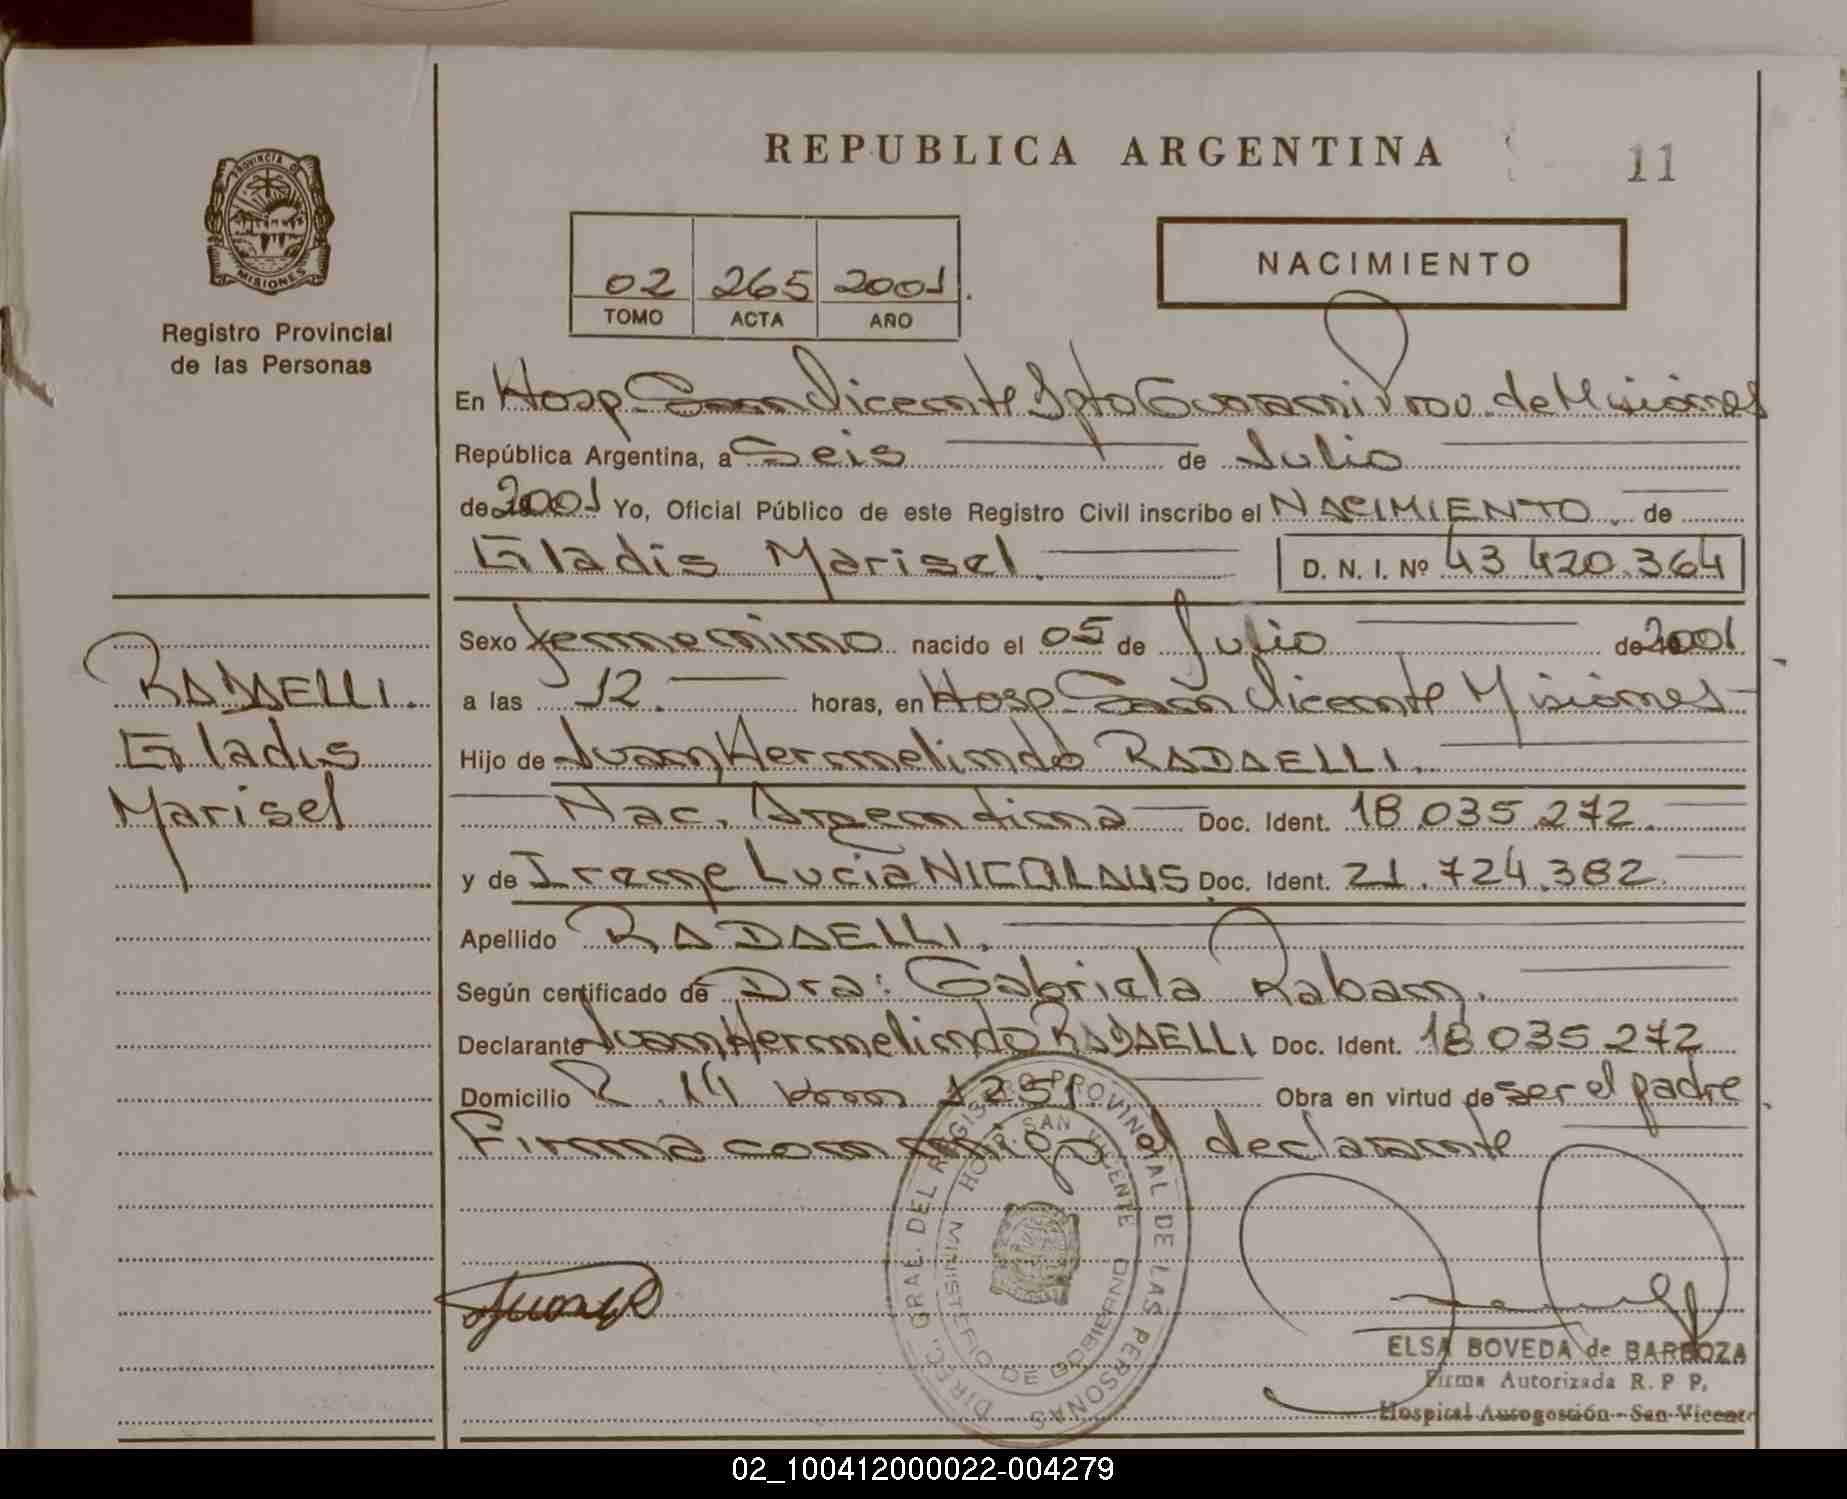 REPUBLICA ARGENTINA
11
PROVINCIA DE
MISIONES
Registro Provincial
de las Personas
02 265 2001
TOMO ACTA AÑO
NACIMIENTO
En Hosp. San Vicente Dpto Guarani Prov. de Misiones
República Argentina, a Seis de Julio
de 2001 Yo, Oficial Público de este Registro Civil inscribo el NACIMIENTO. de
Gladis Marisel. D. N. I. Nº 43 420.364
Sexo femenino nacido el 05 de Julio de 2001
a las 12. horas, en Hosp. San Vicente Misiones
Hijo de Juan Hermelindo RADAELLI.
Nac. Argentina Doc. Ident. 18.035.272.
y de Irene Lucia NICOLAUS Doc. Ident. 21.724.382.
Apellido RADAELLI.
Según certificado de Dra: Gabriela Raban.
Declarante Juan Hermelindo RADAELLI Doc. Ident. 18 035 272
Domicilio R. 14 Km 1251. Obra en virtud de ser el padre
Firma conmigo el declarante
RADAELLI.
Gladis
Marisel
DIREC. GRAL. DEL REGISTRO PROVINCIAL DE LAS PERSONAS
HOSP. SAN VICENTE
MINISTERIO DE GOBIERNO
ELSA BOVEDA de BARBOZA
Firma Autorizada R. P P.
Hospital Autogostión - San Vicente
02_100412000022-004279